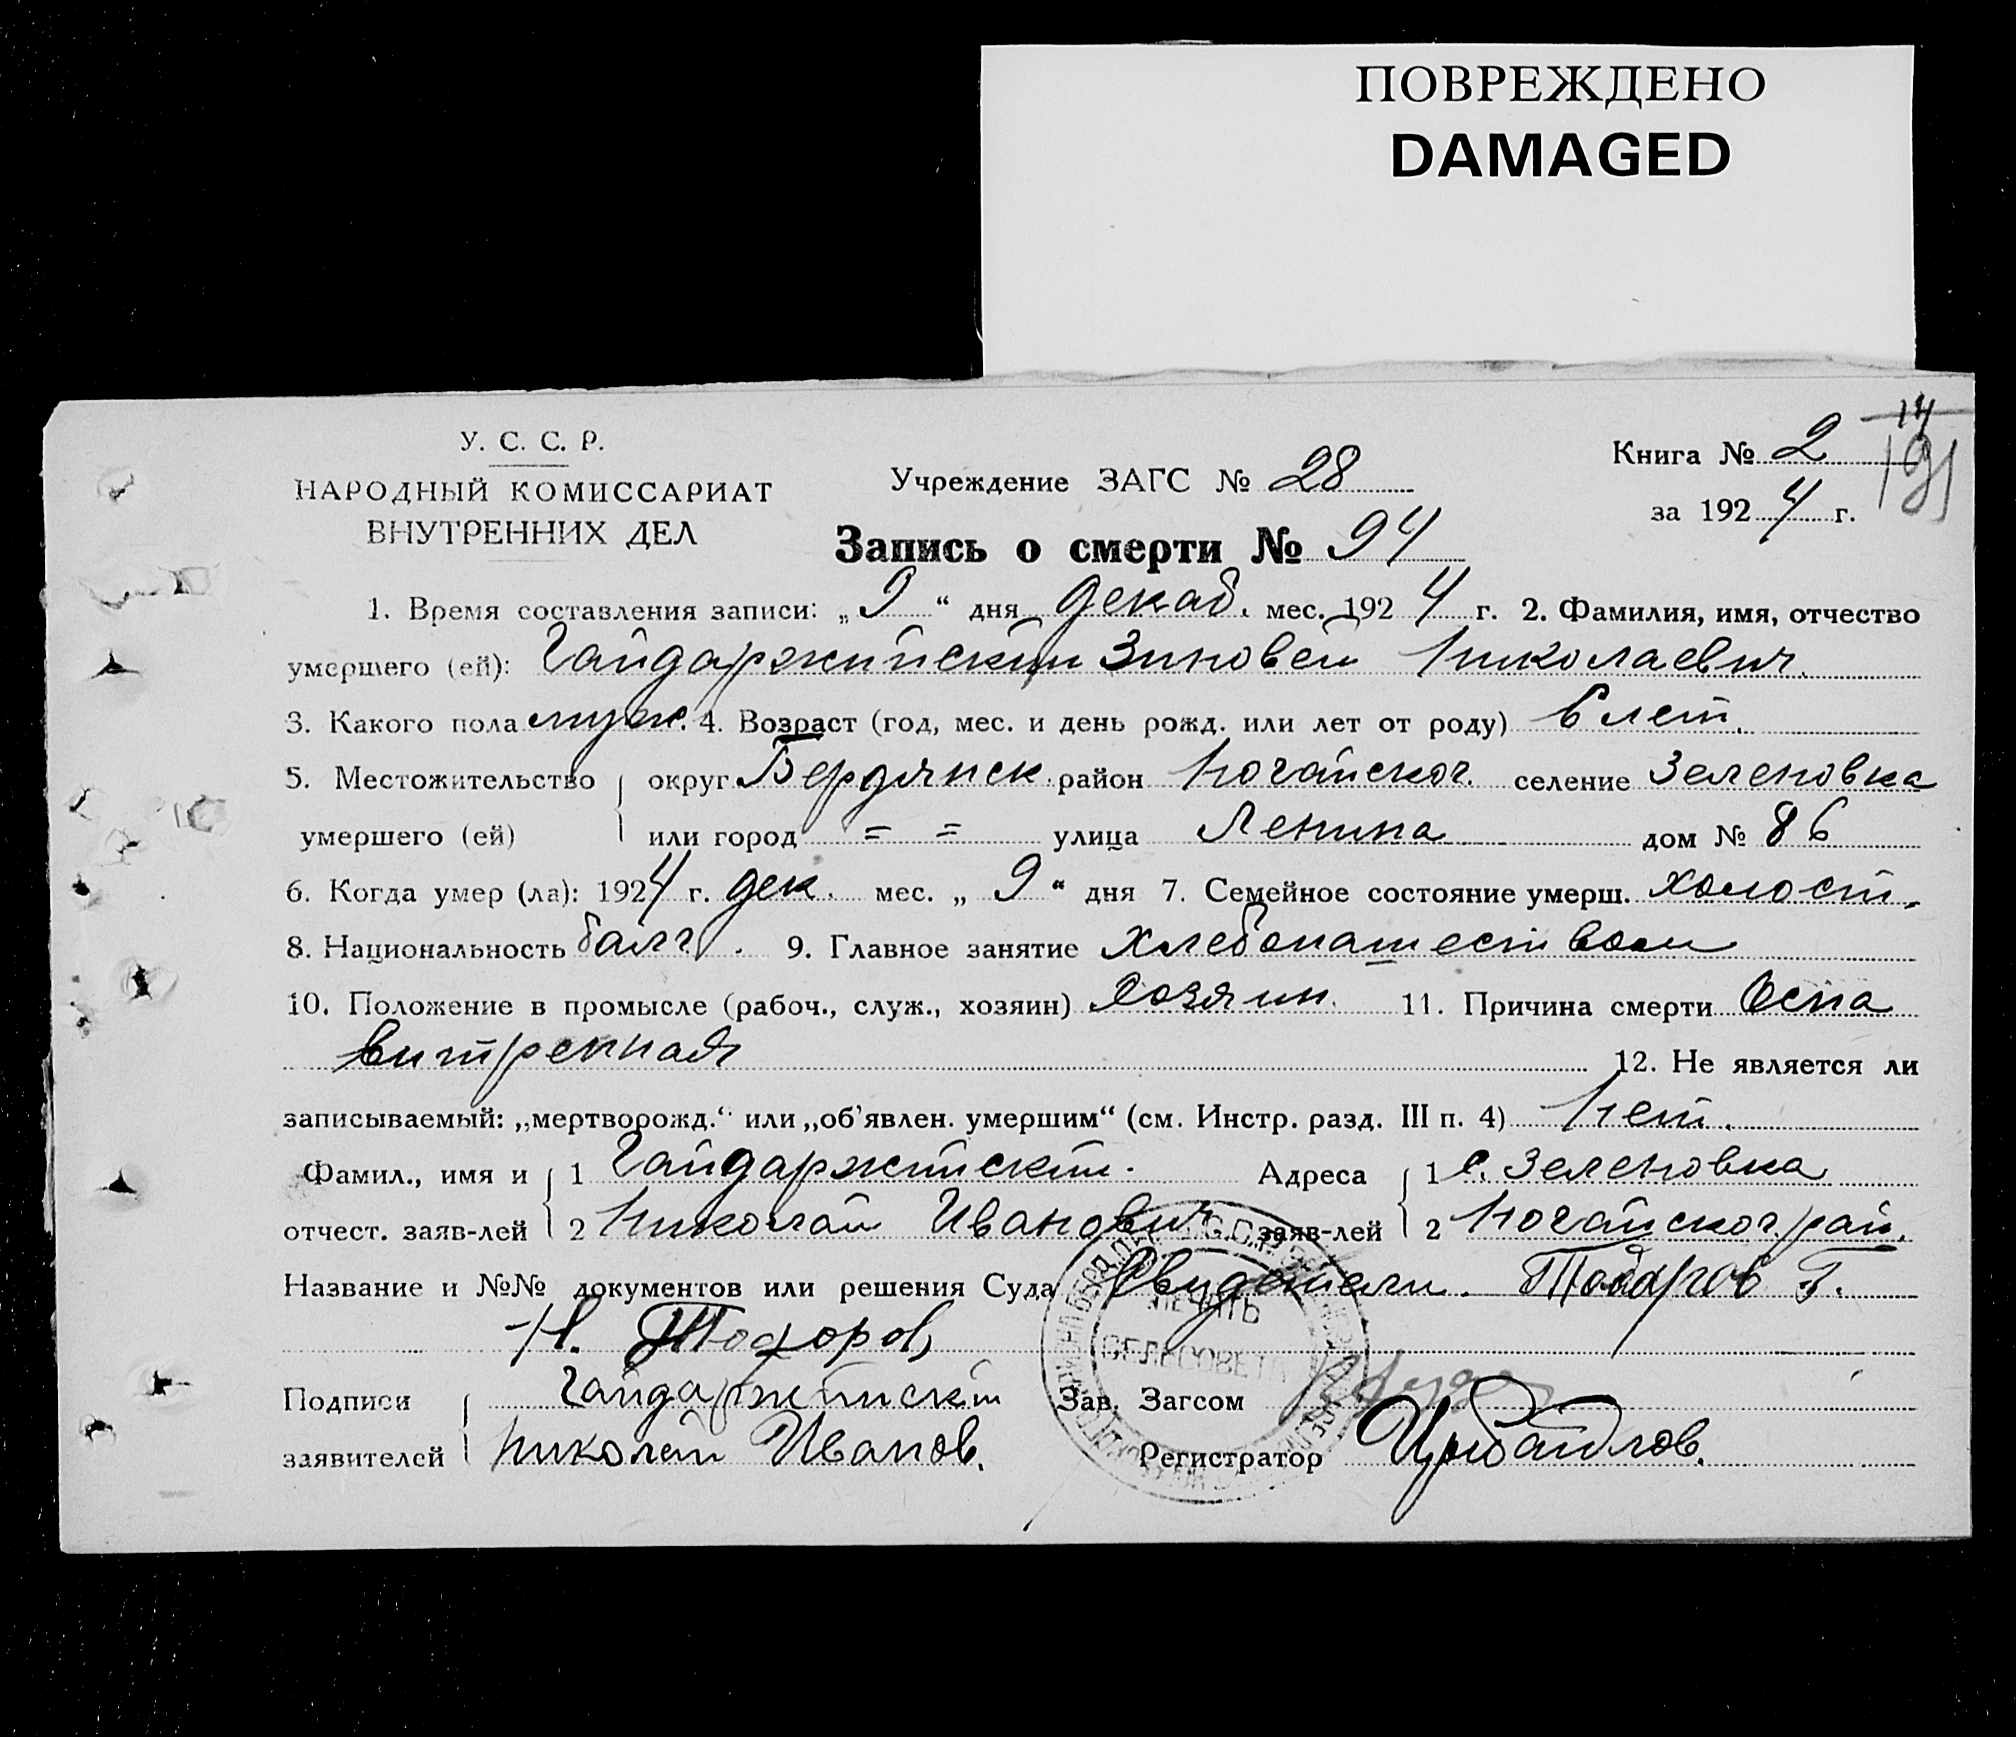 ПОВРЕЖДЕНО
DAMAGED
У. С. С. Р.
НАРОДНЫЙ КОМИССАРИАТ
ВНУТРЕННИХ ДЕЛ
Учреждение ЗАГС № 28
Запись о смерти № 94
14
Книга № 2
191
за 1924 г.
1. Время составления записи: „ 9 “ дня декаб. мес. 1924 г. 2. Фамилия, имя, отчество
умершего (ей): Гайдаржийский Зиновей Николаевич.
3. Какого пола муж. 4. Возраст (год, мес. и день рожд. или лет от роду) 6 лет.
5. Местожительство округ Бердянск. район Ногайског. селение Зеленовка
умершего (ей) или город = = улица Ленина дом № 86
6. Когда умер (ла): 1924 г. дек. мес. „ 9 “ дня 7. Семейное состояние умерш. холост.
8. Национальность балг. 9. Главное занятие хлебопашеством
10. Положение в промысле (рабоч., служ., хозяин) Хозяин. 11. Причина смерти Оспа
витренная 12. Не является ли
записываемый: „мертворожд.“ или „об'явлен. умершим“ (см. Инстр. разд. III п. 4) Нет.
Фамил., имя и 1 Гайдаржийский. Адреса 1 с. Зеленовка
отчест. заяв-лей 2 Николай Иванович заяв-лей 2 Ногайског. рай.
Название и №№ документов или решения Суда Свидетели. Тодоров Г.
Н. Тодоров
ПЕЧАТЬ
СЕЛЬСОВЕТА
Подписи Гайдаржийский Зав. Загсом
заявителей Николай Иванов. Регистратор